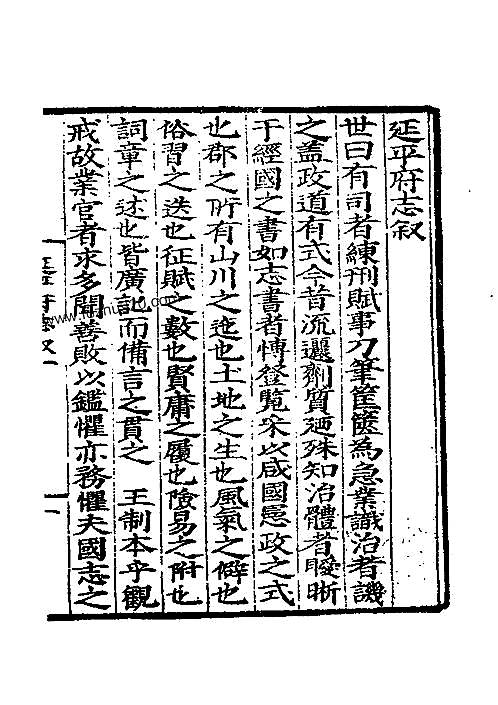 延平府志叙
世曰有司者練刑賦事刀筆筐篋為急業識治者譏
之蓋政道有式今昔流邐劑質廼殊知治體者曖晰
于經國之書如志書者愽登覧采以咸國憲政之式
也郡之所有山川之迹也土地之生也風氣之僻也
俗習之迭也征賦之數也賢庸之履也險易之附也
詞章之述也皆廣記而備言之貫之 王制本乎觀
戒故業官者求多聞善敗以鑑懼亦務懼夫國志之